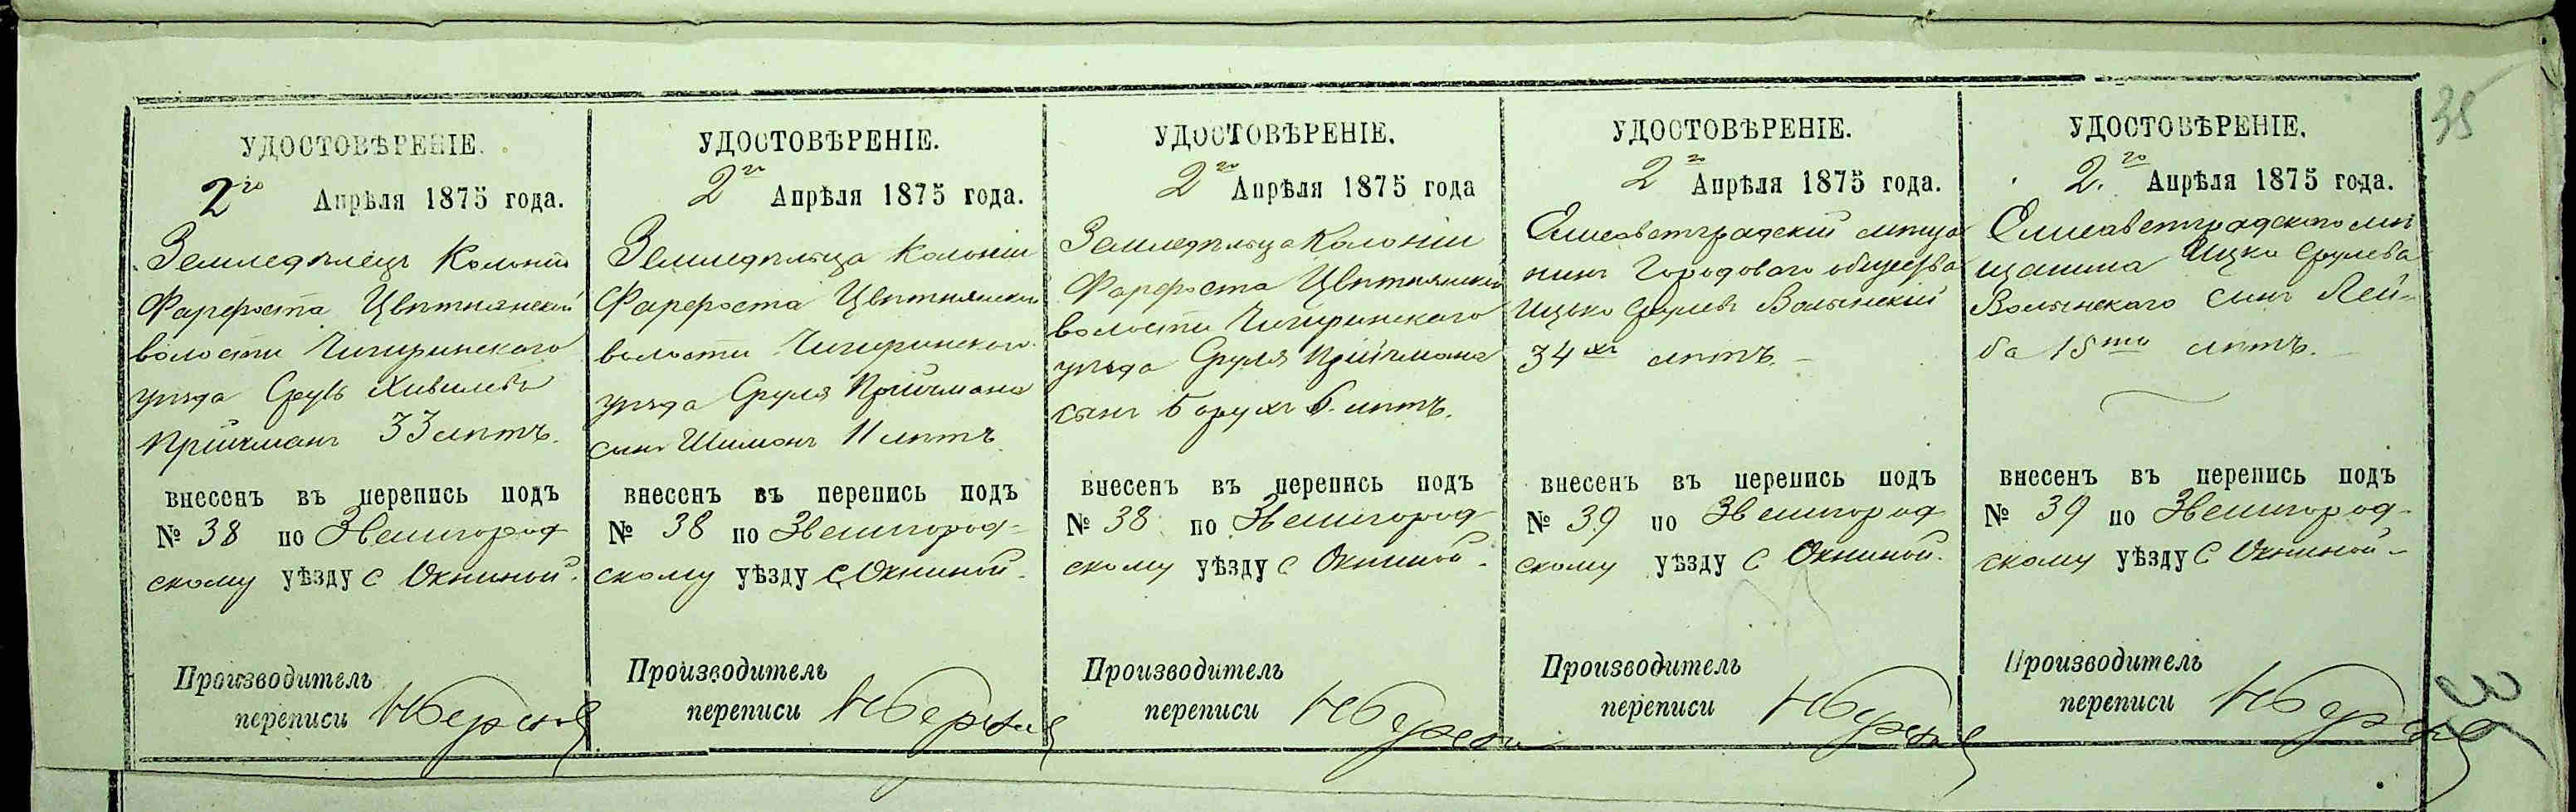 35
УДОСТОВѢРЕНІЕ.
2го Апрѣля 1875 года.
Земледѣлецъ Колоніи
Фарфоста Цвѣтнянской
волости Чигиринскаго
уѣзда Сруль Хивилевъ
Прійчманъ 33 лѣтъ.
внесенъ въ перепись подъ
№ 38 по Звенигород
скому уѣзду с Окниной.
Производитель
переписи
УДОСТОВѢРЕНІЕ.
2го Апрѣля 1875 года.
Земледѣльца Колоніи
Фарфоста Цвѣтнянской
волости Чигиринскаго
уѣзда Сруля Прійчмана
сынъ Шимонъ 11 лѣтъ
внесенъ въ перепись подъ
№ 38 по Звенигород-
скому уѣзду с Окниной.
Производитель
переписи
УДОСТОВѢРЕНІЕ.
2го Апрѣля 1875 года
Земледѣльца Колоніи
Фарфоста Цвѣтнянской
волости Чигиринскаго
уѣзда Сруля Прійчмана
сынъ Борухъ 6. лѣтъ.
внесенъ въ перепись подъ
№ 38 по Звенигород
скому уѣзду с Окниной.
Производитель
переписи
УДОСТОВѢРЕНІЕ.
2го Апрѣля 1875 года.
Елисаветградскій мѣща
нинъ Городоваго общества
Ицько Срулевъ Волынскій
34хъ лѣтъ. –
внесенъ въ перепись подъ
№ 39 по Звенигород
скому уѣзду с Окниной.
Производитель
переписи
УДОСТОВѢРЕНІЕ.
2.го Апрѣля 1875 года.
Елисаветградскаго мѣ
щанина Ицка Срулева
Волынскаго сынъ Лей-
ба 15ти лѣтъ. –
внесенъ въ перепись подъ
№ 39 по Звенигород-
скому уѣзду с Окниной –
Производитель
переписи